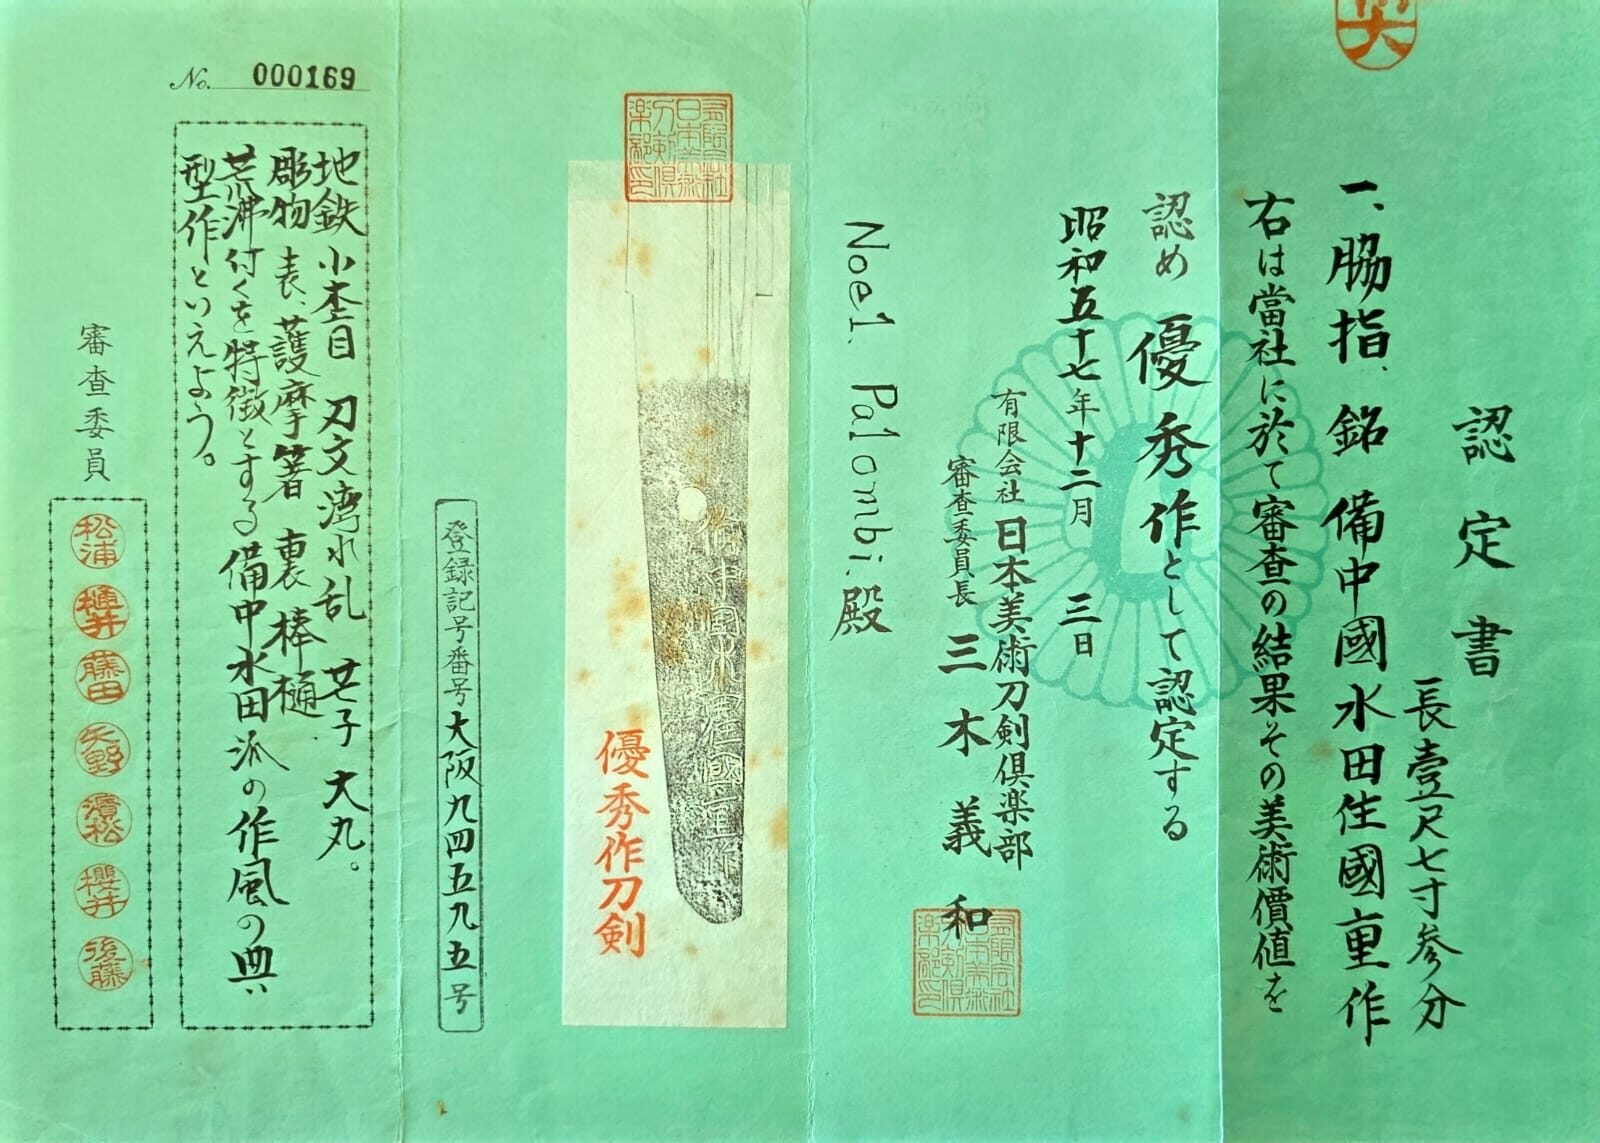 認定書
長壹尺七寸参分
一、脇指、銘 備中國水田住國重作
右は當社に於て審査の結果その美術價値を
認め 優秀作として認定する
昭和五十七年十二月 三日
有限会社 日本美術刀剣倶楽部
審査委員長 三木義和
Noel. Palombi.殿
優秀作刀剣
登録記号番号大阪九四五九五号
No. 000169
地鉄小杢目 刃文湾れ乱 芒子 大丸。
彫物 表、護摩箸 裏 棒樋.
荒沸付くを特徴とする備中水田派の作風の典
型作といえよう。
審査委員
松浦
樋井
藤田
矢野
濱松
櫻井
後藤